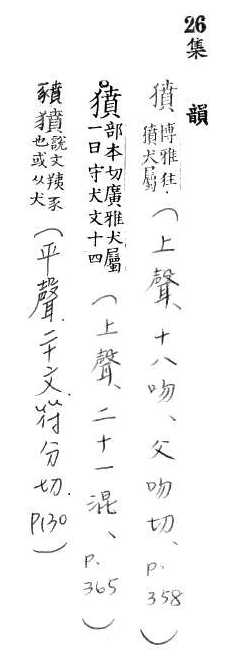 26 集韻
獖 博雅狂獖犬屬(上聲、十八吻、父吻切、p.358)
獖 部本切廣雅犬屬一曰守犬文十四(上聲、二十一混、p.365)
豶獖 說文羠豕也或从犬(平聲.二十文.符分切.P130)